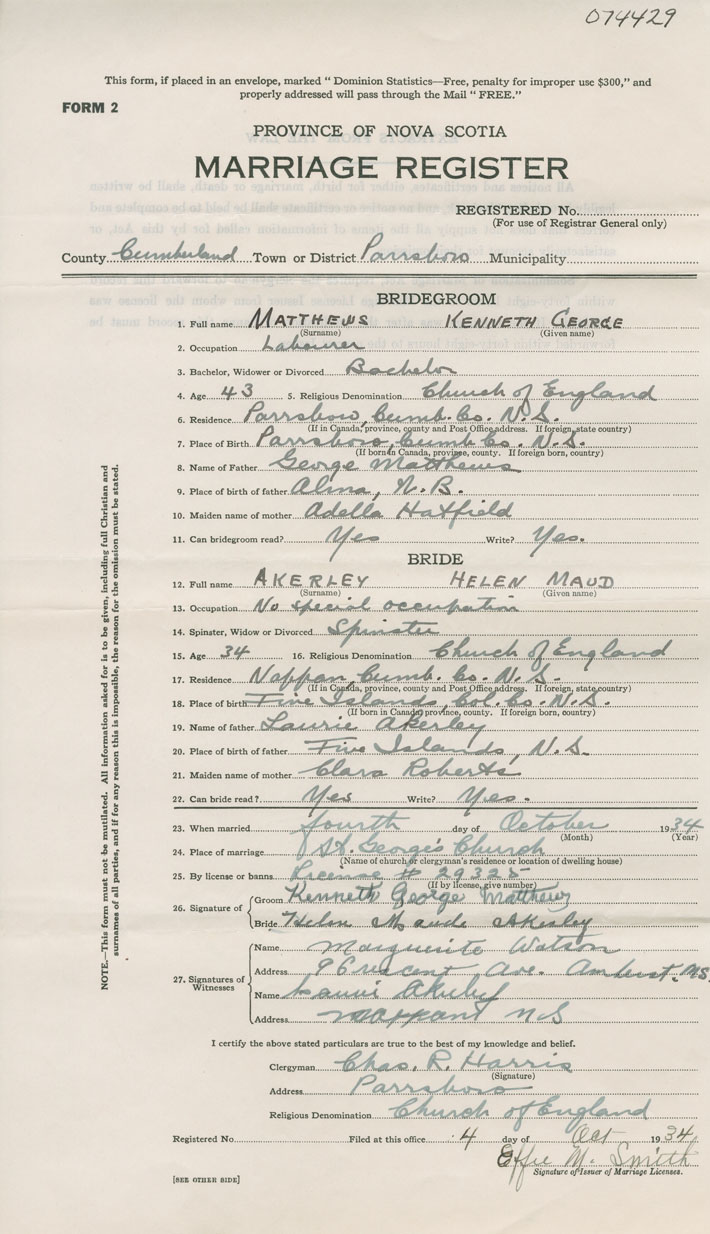 074429
This form, if placed in an envelope, marked “ Dominion Statistics—Free, penalty for improper use $300,” and
properly addressed will pass through the Mail “ FREE.”
FORM 2
PROVINCE OF NOVA SCOTIA
MARRIAGE REGISTER
REGISTERED No.
(For use of Registrar General only)
County Cumberland Town or District Parrsboro Municipality
BRIDEGROOM
1. Full name MATTHEWS KENNETH GEORGE
(Surname) (Given name)
2. Occupation Labourer
3. Bachelor, Widower or Divorced Bachelor
4. Age 43 5. Religious Denomination Church of England
6. Residence Parrsboro, Cumb. Co. N.S.
(If in Canada, province, county and Post Office address. If foreign, state country)
7. Place of Birth Parrsboro, Cumb Co. N.S.
(If born in Canada, province, county. If foreign born, country)
8. Name of Father George Matthews
9. Place of birth of father Alma, N.B.
10. Maiden name of mother Adella Hatfield
11. Can bridegroom read? Yes Write? Yes.
BRIDE
12. Full name AKERLEY HELEN MAUD
(Surname) (Given name)
13. Occupation No special occupation
14. Spinster, Widow or Divorced Spinster
15. Age 34 16. Religious Denomination Church of England
17. Residence Nappan, Cumb. Co. N.S.
(If in Canada, province, county and Post Office address. If foreign, state country)
18. Place of birth Five Islands, Col. Co. N.S.
(If born in Canada, province, county. If foreign born, country)
19. Name of father Laurie Akerley
20. Place of birth of father Five Islands, N.S.
21. Maiden name of mother Clara Roberts
22. Can bride read? Yes Write? Yes.
23. When married fourth day of October 1934
(Month) (Year)
24. Place of marriage St. George's Church
(Name of church or clergyman's residence or location of dwelling house)
25. By license or banns License # 29325
(If by license, give number)
26. Signature of Groom Kenneth George Matthews
Bride Helen Maude Akerley
27. Signatures of Witnesses
Name Marguerite Watson
Address 9 Crescent Ave. Amherst. NS
Name Laurie Akerley
Address Nappan NS
I certify the above stated particulars are true to the best of my knowledge and belief.
Clergyman Chas. R. Harris
(Signature)
Address Parrsboro
Religious Denomination Church of England
Registered No. Filed at this office 4 day of Oct 1934
Effie M. Smith
Signature of Issuer of Marriage Licenses.
[SEE OTHER SIDE]
NOTE.—This form must not be mutilated. All information asked for is to be given, including full Christian and
surnames of all parties, and if for any reason this is impossible, the reason for the omission must be stated.